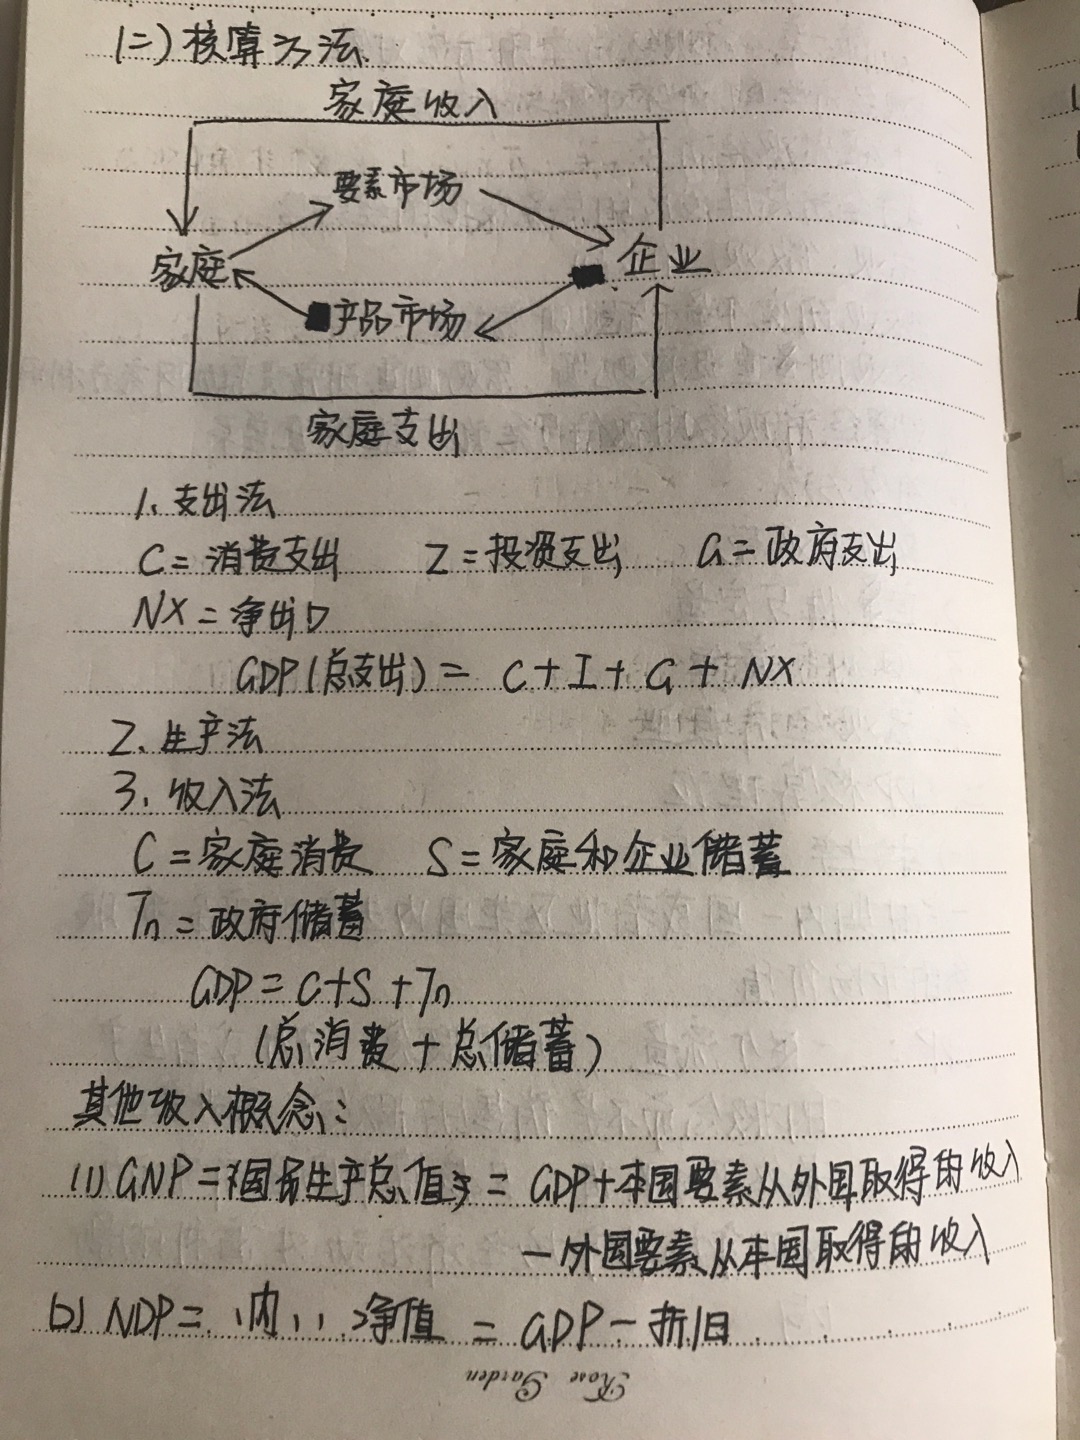 (二)核算方法
家庭收入
要素市场
家庭
企业
产品市场
家庭支出
1、支出法
C=消费支出 I=投资支出 G=政府支出
NX=净出口
GDP(总支出)= C+I+G+NX
2、生产法
3、收入法
C=家庭消费 S=家庭和企业储蓄
Tn=政府储蓄
GDP=C+S+Tn
(总消费+总储蓄)
其他收入概念:
(1) GNP={国民生产总值}= GDP+本国要素从外国取得的收入
-外国要素从本国取得的收入
(2) NDP= 〃内〃〃净值 = GDP-折旧
Rose Garden